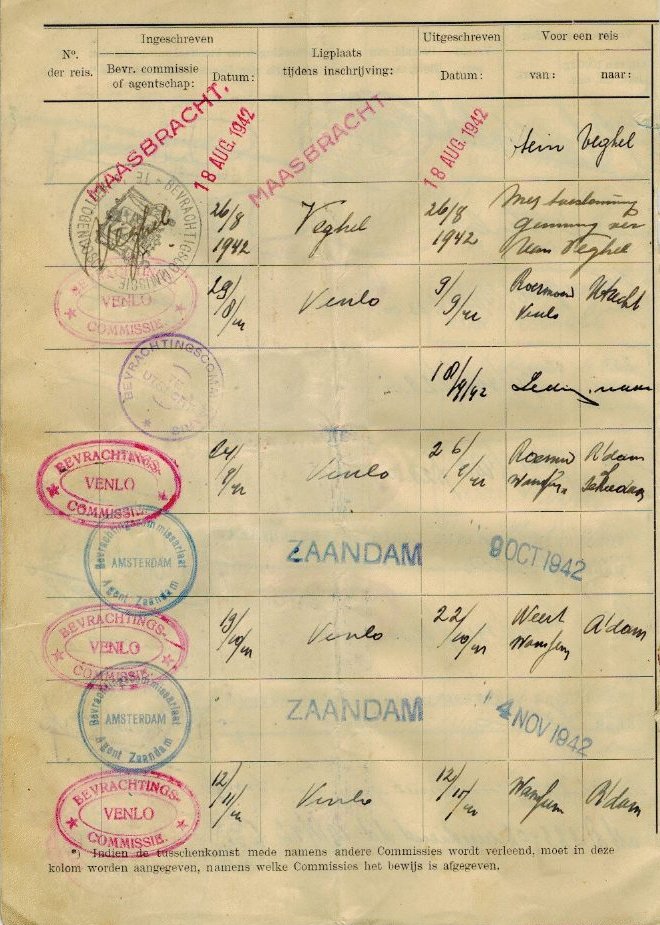 Nº. der reis.
Ingeschreven
Bevr. commissie of agentschap:
Datum:
Ligplaats tijdens inschrijving:
Uitgeschreven
Datum:
Voor een reis
van:
naar:
MAASBRACHT.
18 AUG. 1942
MAASBRACHT
18 AUG. 1942
Veghel
Veghel
26/8 1942
Veghel
26/8 1942
Veghel
VENLO
COMMISSIE
29/8/42
Venlo
9/9/42
Roermond Venlo
BEVRACHTINGSCOMM
UTRECHT
18/9/42
BEVRACHTINGS-
VENLO
COMMISSIE
Venlo
R'dam
Schiedam
Bevrachtingscommissariaat
AMSTERDAM
Agent Zaandam
ZAANDAM
9 OCT 1942
BEVRACHTINGS-
VENLO
COMMISSIE
19/10/42
Venlo
22/10/42
Weert
Wanssum
A'dam
Bevrachtingscommissariaat
AMSTERDAM
Agent Zaandam
ZAANDAM
4 NOV 1942
BEVRACHTINGS-
VENLO
COMMISSIE
12/11/42
Venlo
12/11/42
Wanssum
R'dam
*) Indien de tusschenkomst mede namens andere Commissies wordt verleend, moet in deze
kolom worden aangegeven, namens welke Commissies het bewijs is afgegeven.